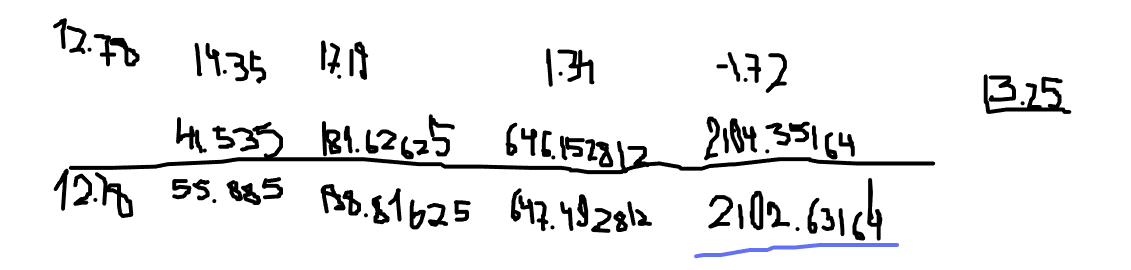 12.78 14.35 17.19 1.34 -1.72 3.25
41.535 181.62625 646.152812 2104.35164
12.78 55.885 198.81625 647.492812 2102.63164